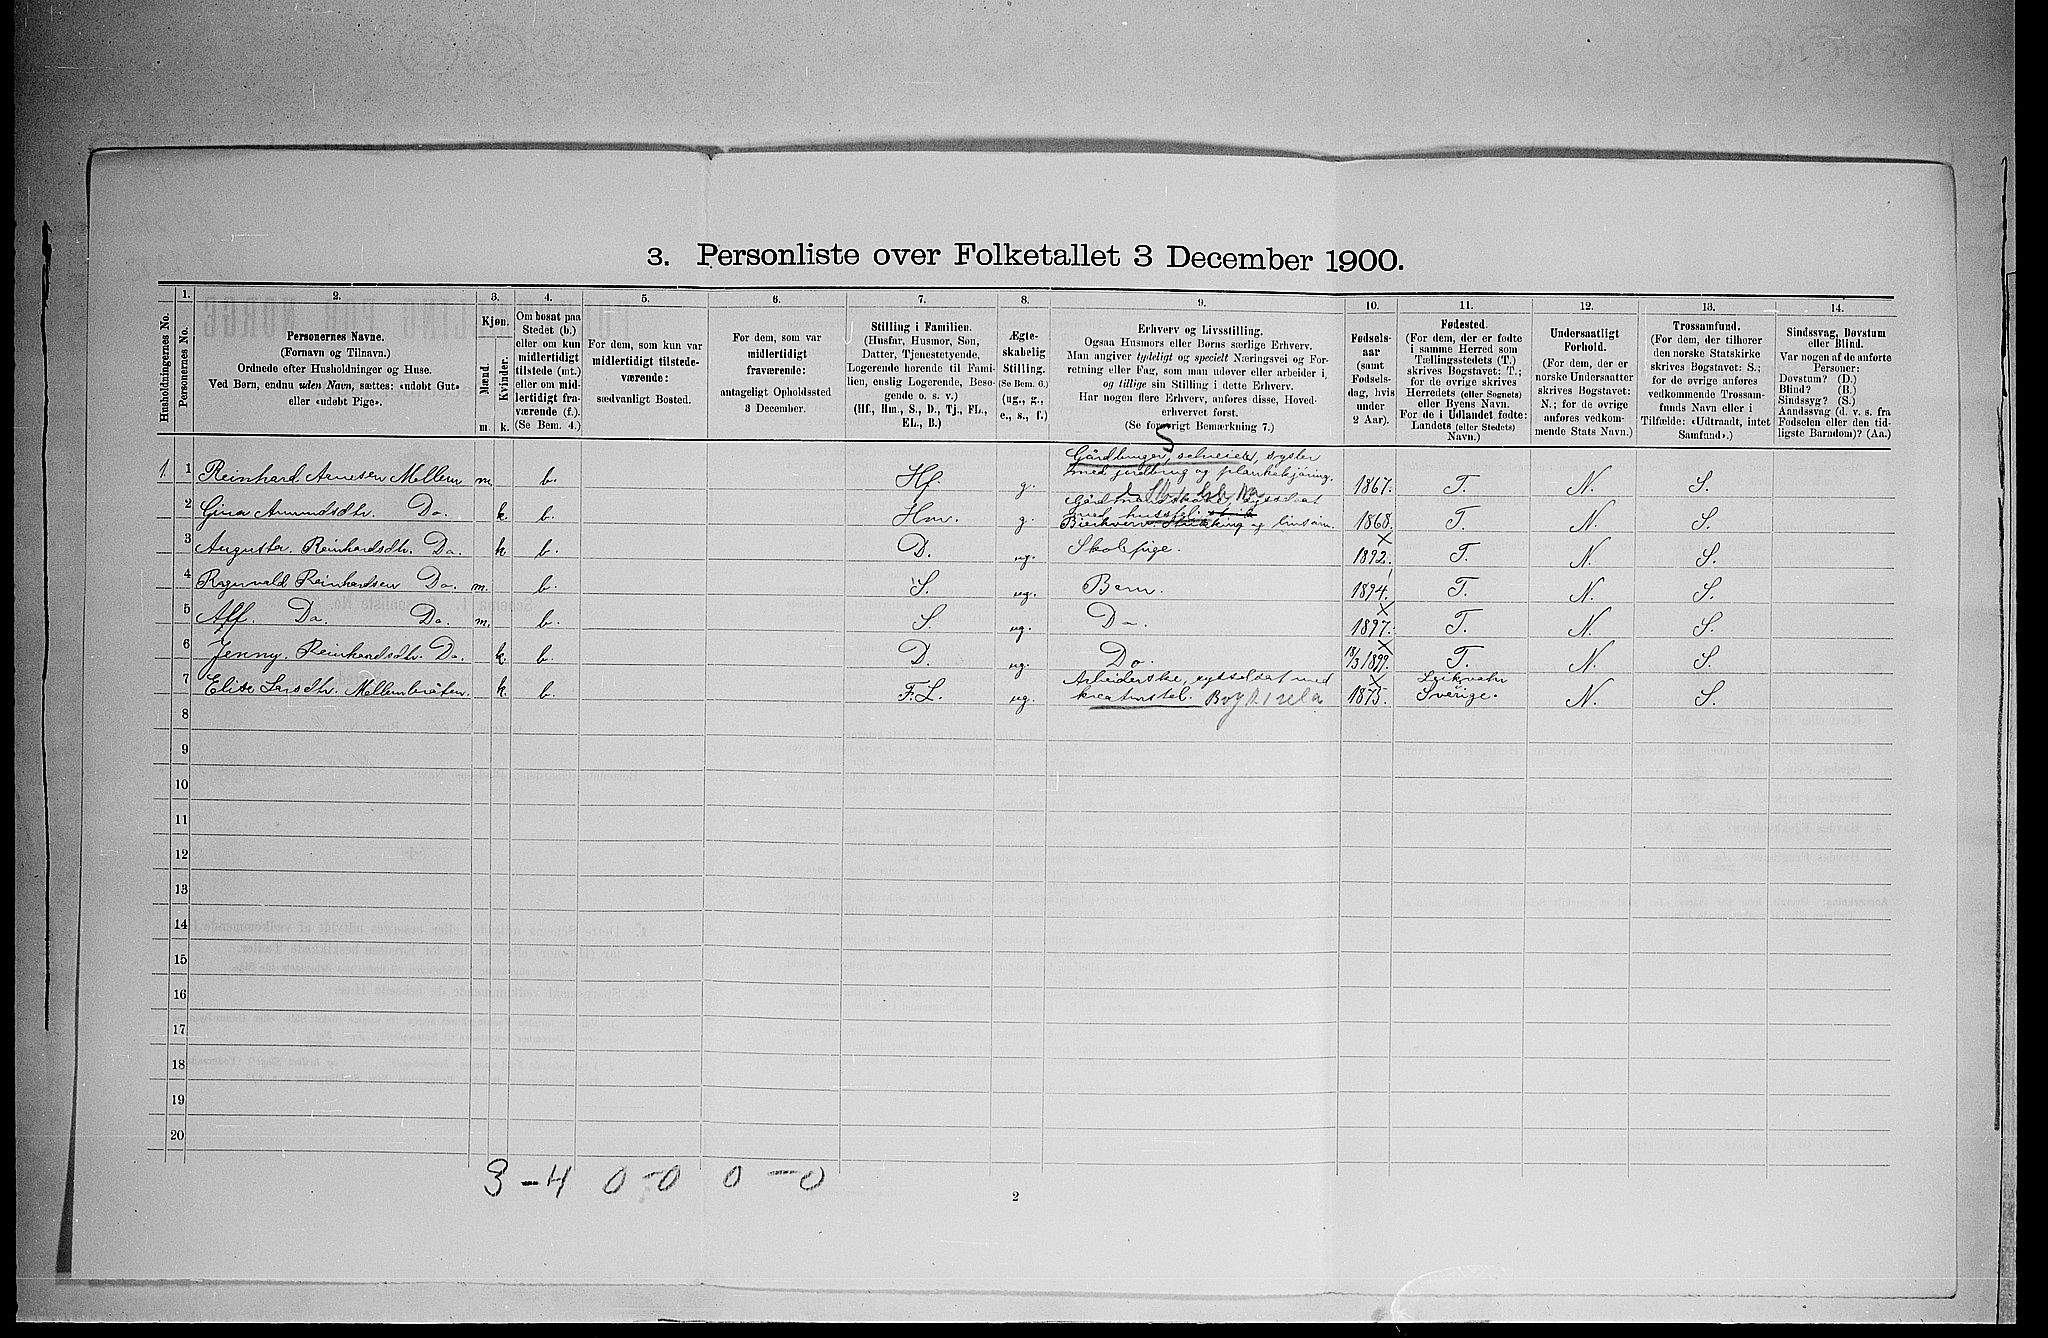 3. Personliste over Folketallet 3 December 1900.
Husholdningernes No.
1.
Personernes No.
2.
Personernes Navne.
(Fornavn og Tilnavn.)
Ordnede efter Husholdninger og Huse.
Ved Børn, endnu uden Navn, sættes: «udøbt Gut»
eller «udøbt Pige».
3.
Kjøn.
Mænd.
m.
Kvinder.
k.
4.
Om bosat paa
Stedet (b.)
eller om kun
midlertidigt
tilstede (mt.)
eller om mid-
lertidigt fra-
værende (f.).
(Se Bem. 4.)
5.
For dem, som kun var
midlertidigt tilstede-
værende:
sædvanligt Bosted.
6.
For dem, som var
midlertidigt
fraværende:
antageligt Opholdssted
3 December.
7.
Stilling i Familien.
(Husfar, Husmor, Søn,
Datter, Tjenestetyende,
Logerende hørende til Fami-
lien, enslig Logerende, Besø-
gende o. s. v.)
(Hf., Hm., S., D., Tj., FL.,
EL., B.)
8.
Ægte-
skabelig
Stilling.
(Se Bem. 6.)
(ug., g.,
e., s., f.)
9.
Erhverv og Livsstilling.
Ogsaa Husmors eller Børns særlige Erhverv.
Man angiver tydeligt og specielt Næringsvei og For-
retning eller Fag, som man udøver eller arbeider i,
og tillige sin Stilling i dette Erhverv.
Har nogen flere Erhverv, anføres disse, Hoved-
erhvervet først.
(Se forøvrigt Bemærkning 7.)
10.
Fødsels-
aar
(samt
Fødsels-
dag, hvis
under
2 Aar).
11.
Fødested.
(For dem, der er fødte
i samme Herred som
Tællingsstedets (T.)
skrives Bogstavet: T.;
for de øvrige skrives
Herredets (eller Sognets)
eller Byens Navn.
For de i Udlandet fødte:
Landets (eller Stedets)
Navn.)
12.
Undersaatligt
Forhold.
(For dem, der er
norske Undersaatter
skrives Bogstavet:
N.; for de øvrige
anføres vedkom-
mende Stats Navn.)
13.
Trossamfund.
(For dem, der tilhører
den norske Statskirke
skrives Bogstavet: S.;
for de øvrige anføres
vedkommende Trossam-
funds Navn eller i
Tilfælde: «Udtraadt, intet
Samfund».)
14.
Sindssvag, Døvstum
eller Blind.
Var nogen af de anførte
Personer:
Døvstum? (D.)
Blind? (B.)
Sindssyg? (S.)
Aandssvag (d. v. s. fra
Fødselen eller den tid-
ligste Barndom)? (Aa.)
S
Gårdbruger, selveier, syster
med jordbrug og plankekjøring.
1 1 Reinhard Arnesen Mellem m. b. Hf. g. 1867. T. N. S.
Gårdmandskone, sysselsat
med husstel
2 Gina Amundsdtr. Do. k. b. Hm. g. Bierhverv. Strikking og linsøm. 1868. T. N. S.
3 Augusta Reinhardsdtr. Do. k. b. D. ug. Skolepige. 1892. T. N. S.
4 Ragnvald Reinhardsen Do. m. b. S. ug. Barn. 1894. T. N. S.
5 Aff. Do. Do. m. b. S. ug. Do. 1897. T. N. S.
6 Jenny. Reinhardsdtr. Do. k. b. D. ug. Do. 18/3 1899. T. N. S.
Arbeiderske, sysselsat med
7 Elise Larsdtr. Mellembråten. k. b. F.L. ug. kreaturstel. 1875. Sverige. N. S.
8
9
10
11
12
13
14
15
16
17
18
19
20
3-4 0-0 0-0
2